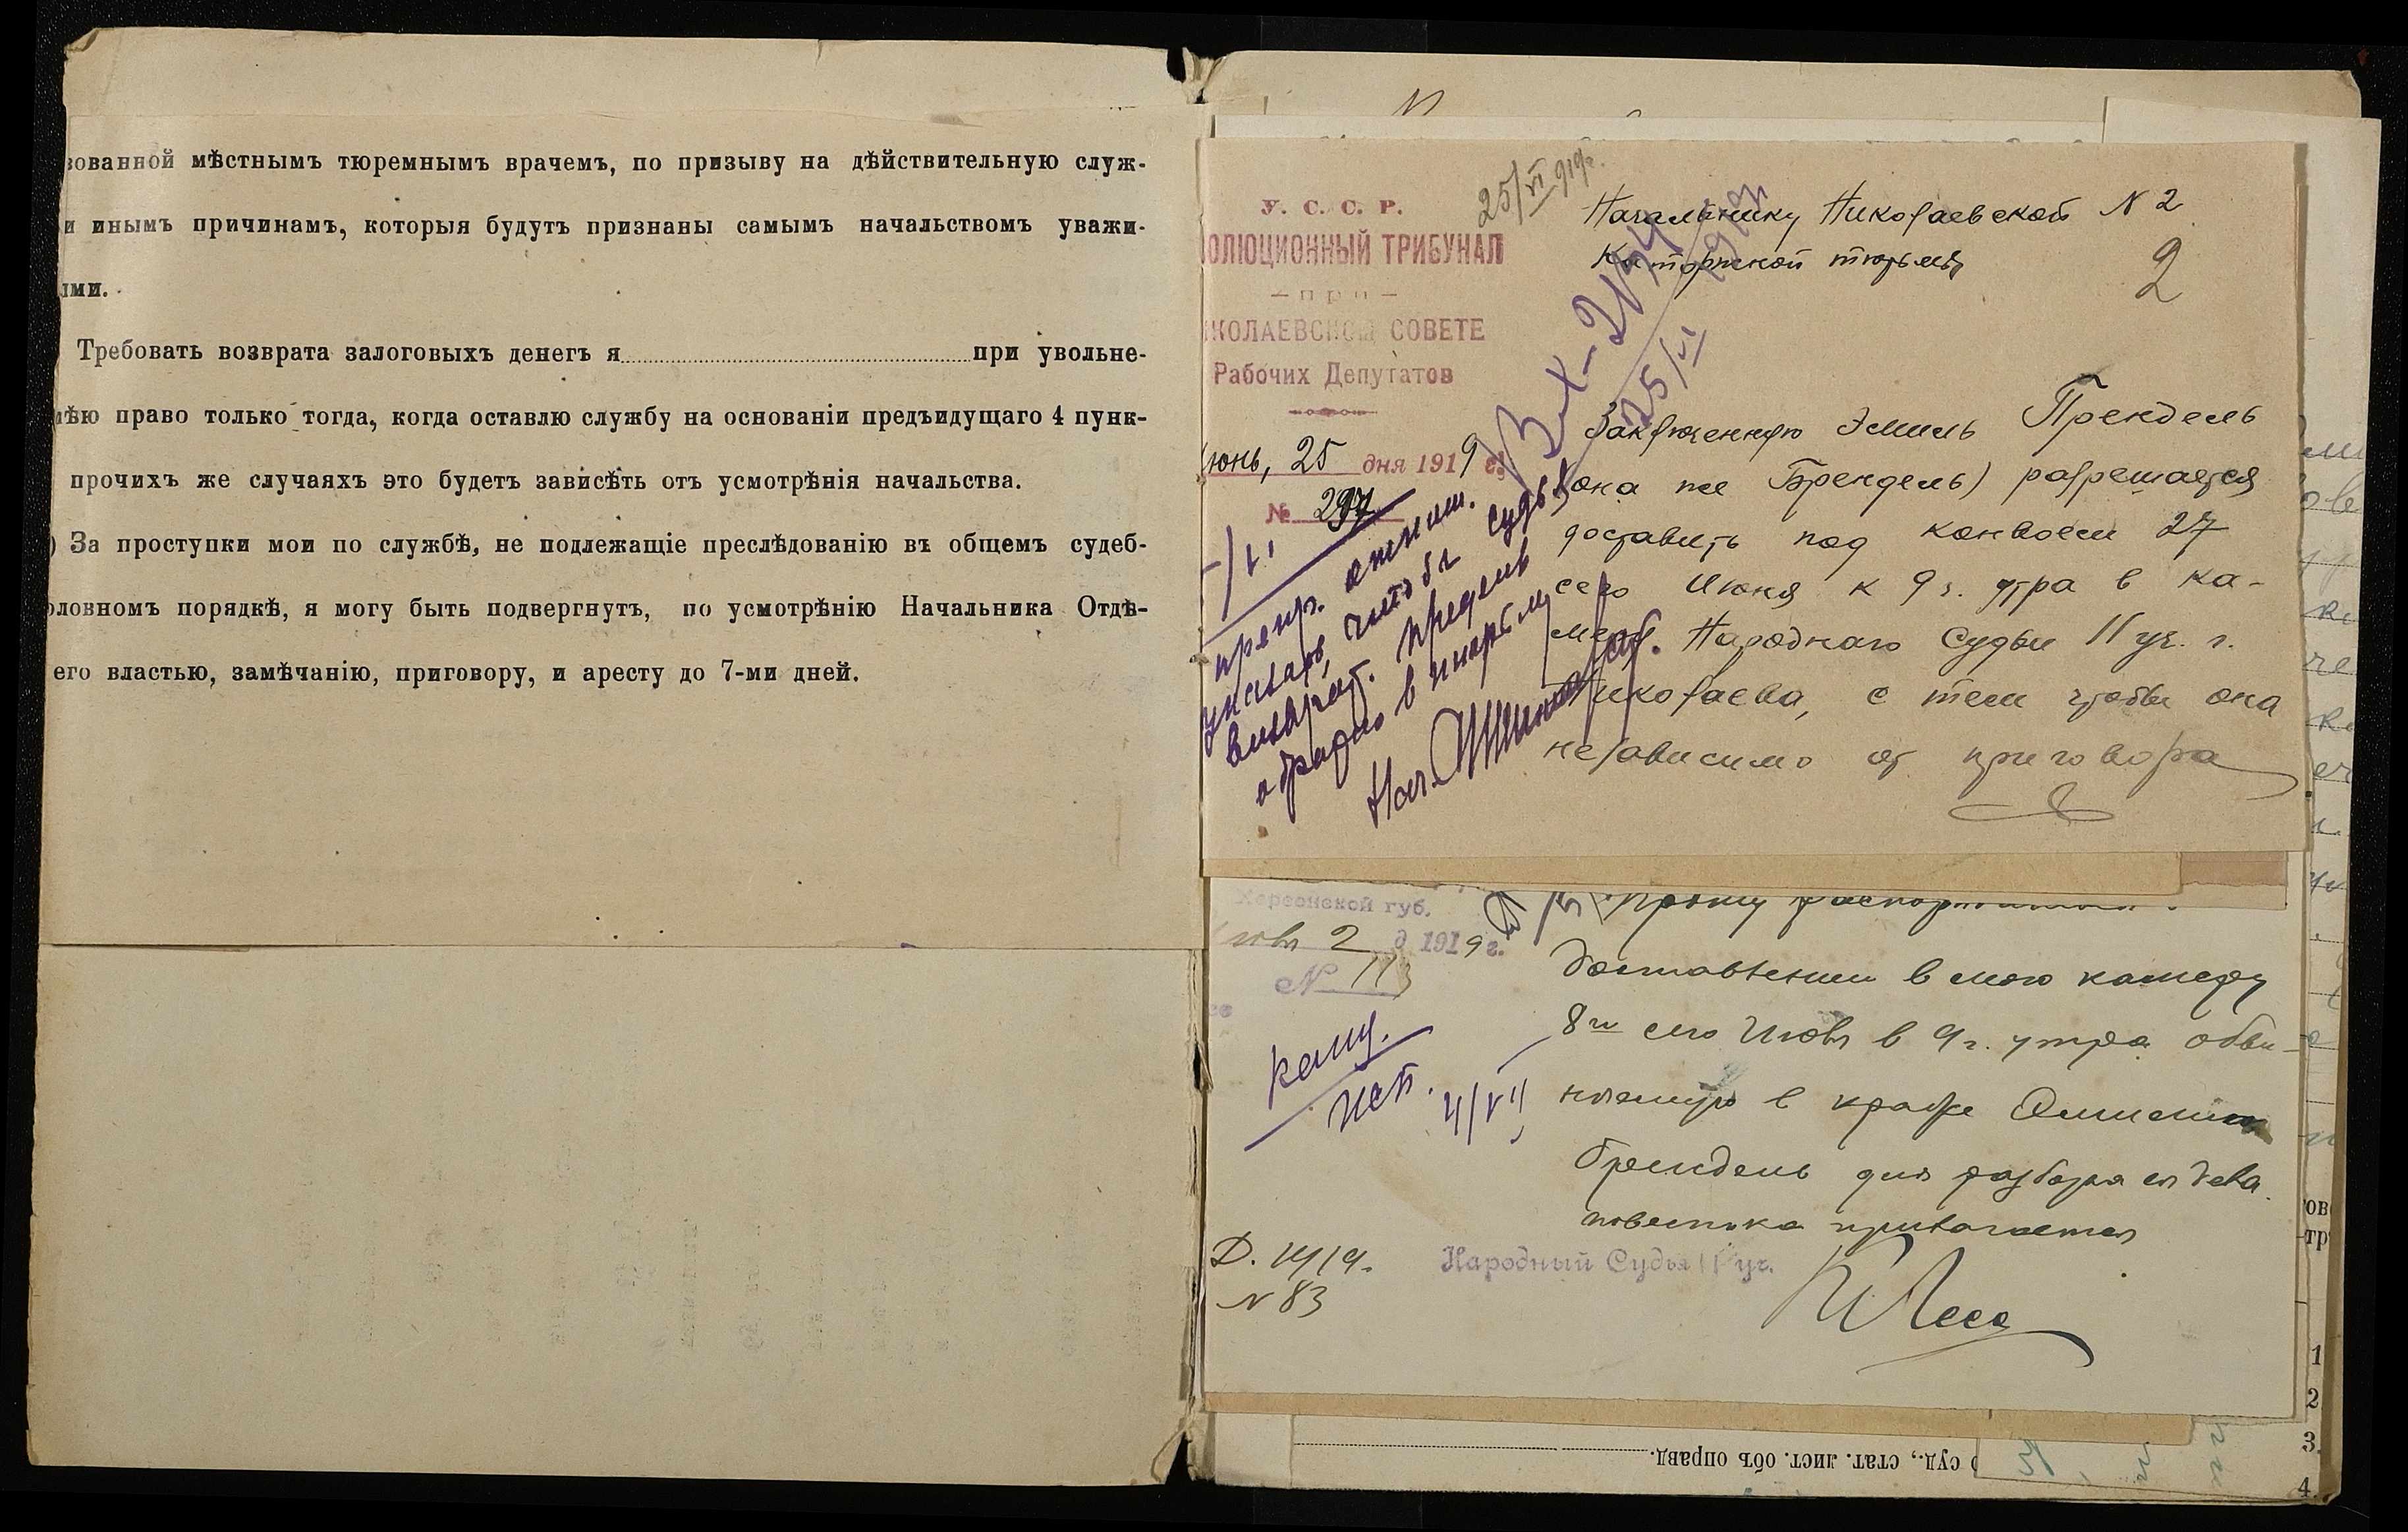 зованной мѣстнымъ тюремнымъ врачемъ, по призыву на дѣйствительную служ-
и инымъ причинамъ, которыя будутъ признаны самымъ начальствомъ уважи-
ыми.
Требовать возврата залоговыхъ денегъ я при увольне-
мѣю право только тогда, когда оставлю службу на основаніи предъидущаго 4 пунк-
прочихъ же случаяхъ это будетъ зависѣть отъ усмотрѣнія начальства.
) За проступки мои по службѣ, не подлежащіе преслѣдованію въ общемъ судеб-
оловномъ порядкѣ, я могу быть подвергнутъ, по усмотрѣнію Начальника Отдѣ-
его властью, замѣчанію, приговору, и аресту до 7-ми дней.
25/VI 919г.
У. С. С. Р.
ОЛЮЦИОННЫЙ ТРИБУНАЛ
— при —
КОЛАЕВСКОМ СОВЕТЕ
Рабочих Депутатов
юнь, 25 дня 1919 г.
№ 297
Вх-
25/VI
Начальнику Николаевской N 2
Каторжной тюрьмы
2
Заключенную Эмиль Прендель
(она же Брендель) разрешается
доставить под конвоем 27
сего Июня к 9 ч. утра в ка-
меру Народнаго Судьи 11 уч. г.
Николаева, с тем чтобы она
независимо от приговора
чтобы судья
возврат. Прендель
обратно в тюрьму
Нач.
Херсонской губ.
2 д 1919 г.
№ 113
Прошу
доставлении в мою камеру
8го сего Июля в 9 ч. утра обви-
няемую в краже
Брендель для разбора ея дела.
повестка прилагается
исп.
4/VII
Д. 1919.
N 83
Народный Судья 11 уч.
суд., стат. лист. объ оправд.
ов
тр
1
2
3.
4.